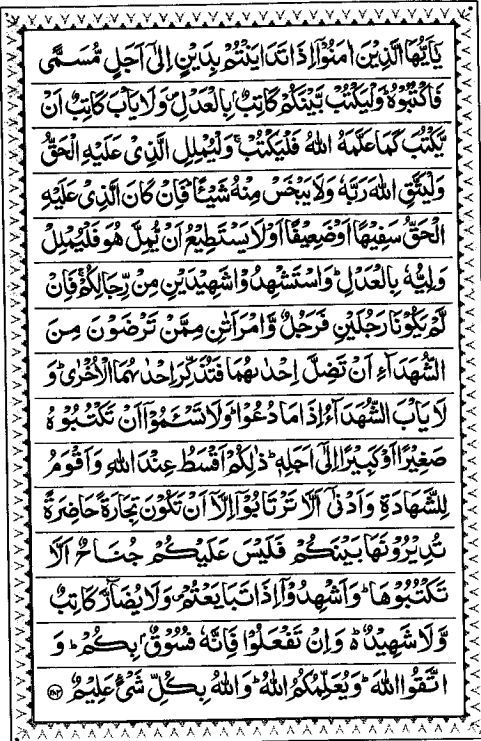 يٰۤاَيُّهَا الَّذِيْنَ اٰمَنُوْۤا اِذَا تَدَايَنْتُمْ بِدَيْنٍ اِلٰۤى اَجَلٍ مُّسَمًّى
فَاكْتُبُوْهُ ؕ وَلْيَكْتُبْ بَّيْنَكُمْ كَاتِبٌۢ بِالْعَدْلِ ۪ وَلَا يَاْبَ كَاتِبٌ اَنْ
يَّكْتُبَ كَمَا عَلَّمَهُ اللّٰهُ فَلْيَكْتُبْ ۚ وَلْيُمْلِلِ الَّذِيْ عَلَيْهِ الْحَقُّ
وَلْيَتَّقِ اللّٰهَ رَبَّهٗ وَلَا يَبْخَسْ مِنْهُ شَيْـًٔا ؕ فَاِنْ كَانَ الَّذِيْ عَلَيْهِ
الْحَقُّ سَفِيْهًا اَوْ ضَعِيْفًا اَوْ لَا يَسْتَطِيْعُ اَنْ يُّمِلَّ هُوَ فَلْيُمْلِلْ
وَلِيُّهٗ بِالْعَدْلِ ؕ وَاسْتَشْهِدُوْا شَهِيْدَيْنِ مِنْ رِّجَالِكُمْ ۚ فَاِنْ
لَّمْ يَكُوْنَا رَجُلَيْنِ فَرَجُلٌ وَّامْرَاَتٰنِ مِمَّنْ تَرْضَوْنَ مِنَ
الشُّهَدَآءِ اَنْ تَضِلَّ اِحْدٰىهُمَا فَتُذَكِّرَ اِحْدٰىهُمَا الْاُخْرٰى ؕ وَ
لَا يَاْبَ الشُّهَدَآءُ اِذَا مَا دُعُوْا ؕ وَلَا تَسْـَٔمُوْۤا اَنْ تَكْتُبُوْهُ
صَغِيْرًا اَوْ كَبِيْرًا اِلٰۤى اَجَلِهٖ ؕ ذٰلِكُمْ اَقْسَطُ عِنْدَ اللّٰهِ وَاَقْوَمُ
لِلشَّهَادَةِ وَاَدْنٰۤى اَلَّا تَرْتَابُوْۤا اِلَّاۤ اَنْ تَكُوْنَ تِجَارَةً حَاضِرَةً
تُدِيْرُوْنَهَا بَيْنَكُمْ فَلَيْسَ عَلَيْكُمْ جُنَاحٌ اَلَّا
تَكْتُبُوْهَا ؕ وَاَشْهِدُوْۤا اِذَا تَبَايَعْتُمْ ۪ وَلَا يُضَآرَّ كَاتِبٌ
وَّلَا شَهِيْدٌ ؕ۬ وَاِنْ تَفْعَلُوْا فَاِنَّهٗ فُسُوْقٌۢ بِكُمْ ؕ وَ
اتَّقُوا اللّٰهَ ؕ وَيُعَلِّمُكُمُ اللّٰهُ ؕ وَاللّٰهُ بِكُلِّ شَيْءٍ عَلِيْمٌ ﴿۲۸۲﴾